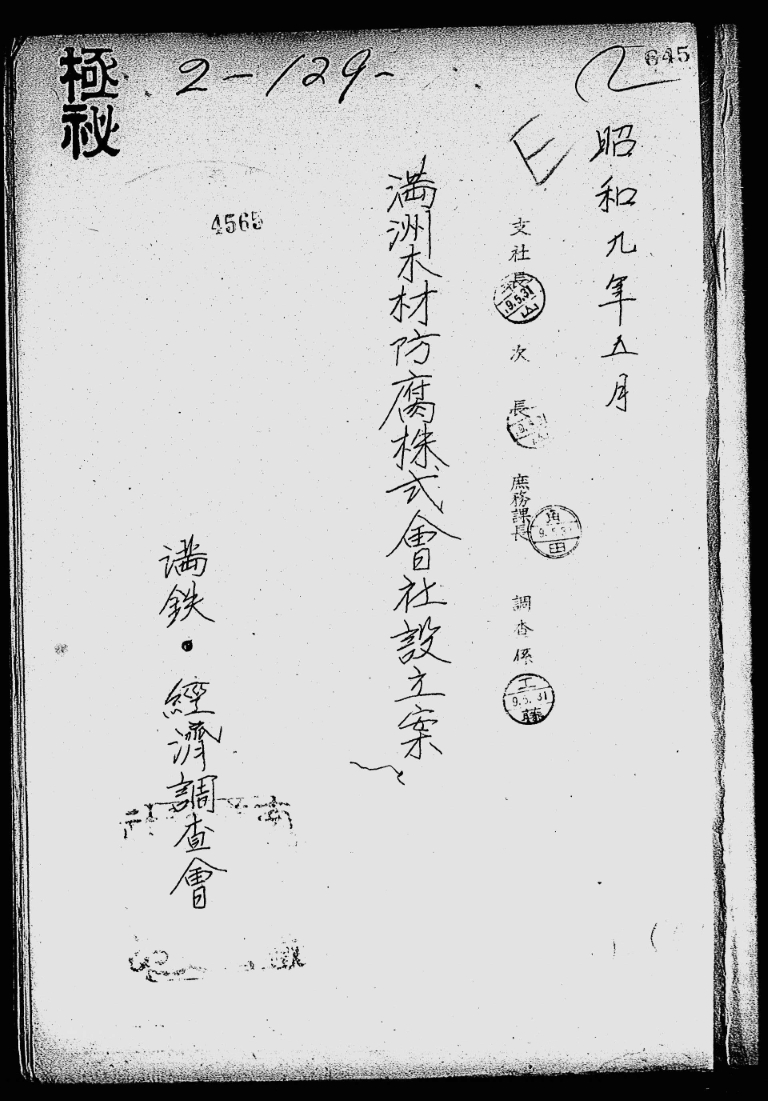 645
極秘
2-129-
E
昭和九年五月
支社長
9.5.31
山
次長
庶務課長
角田
調査係
工藤
9.5.31
満洲木材防腐株式會社設立案
4565
満鉄・經濟調査會